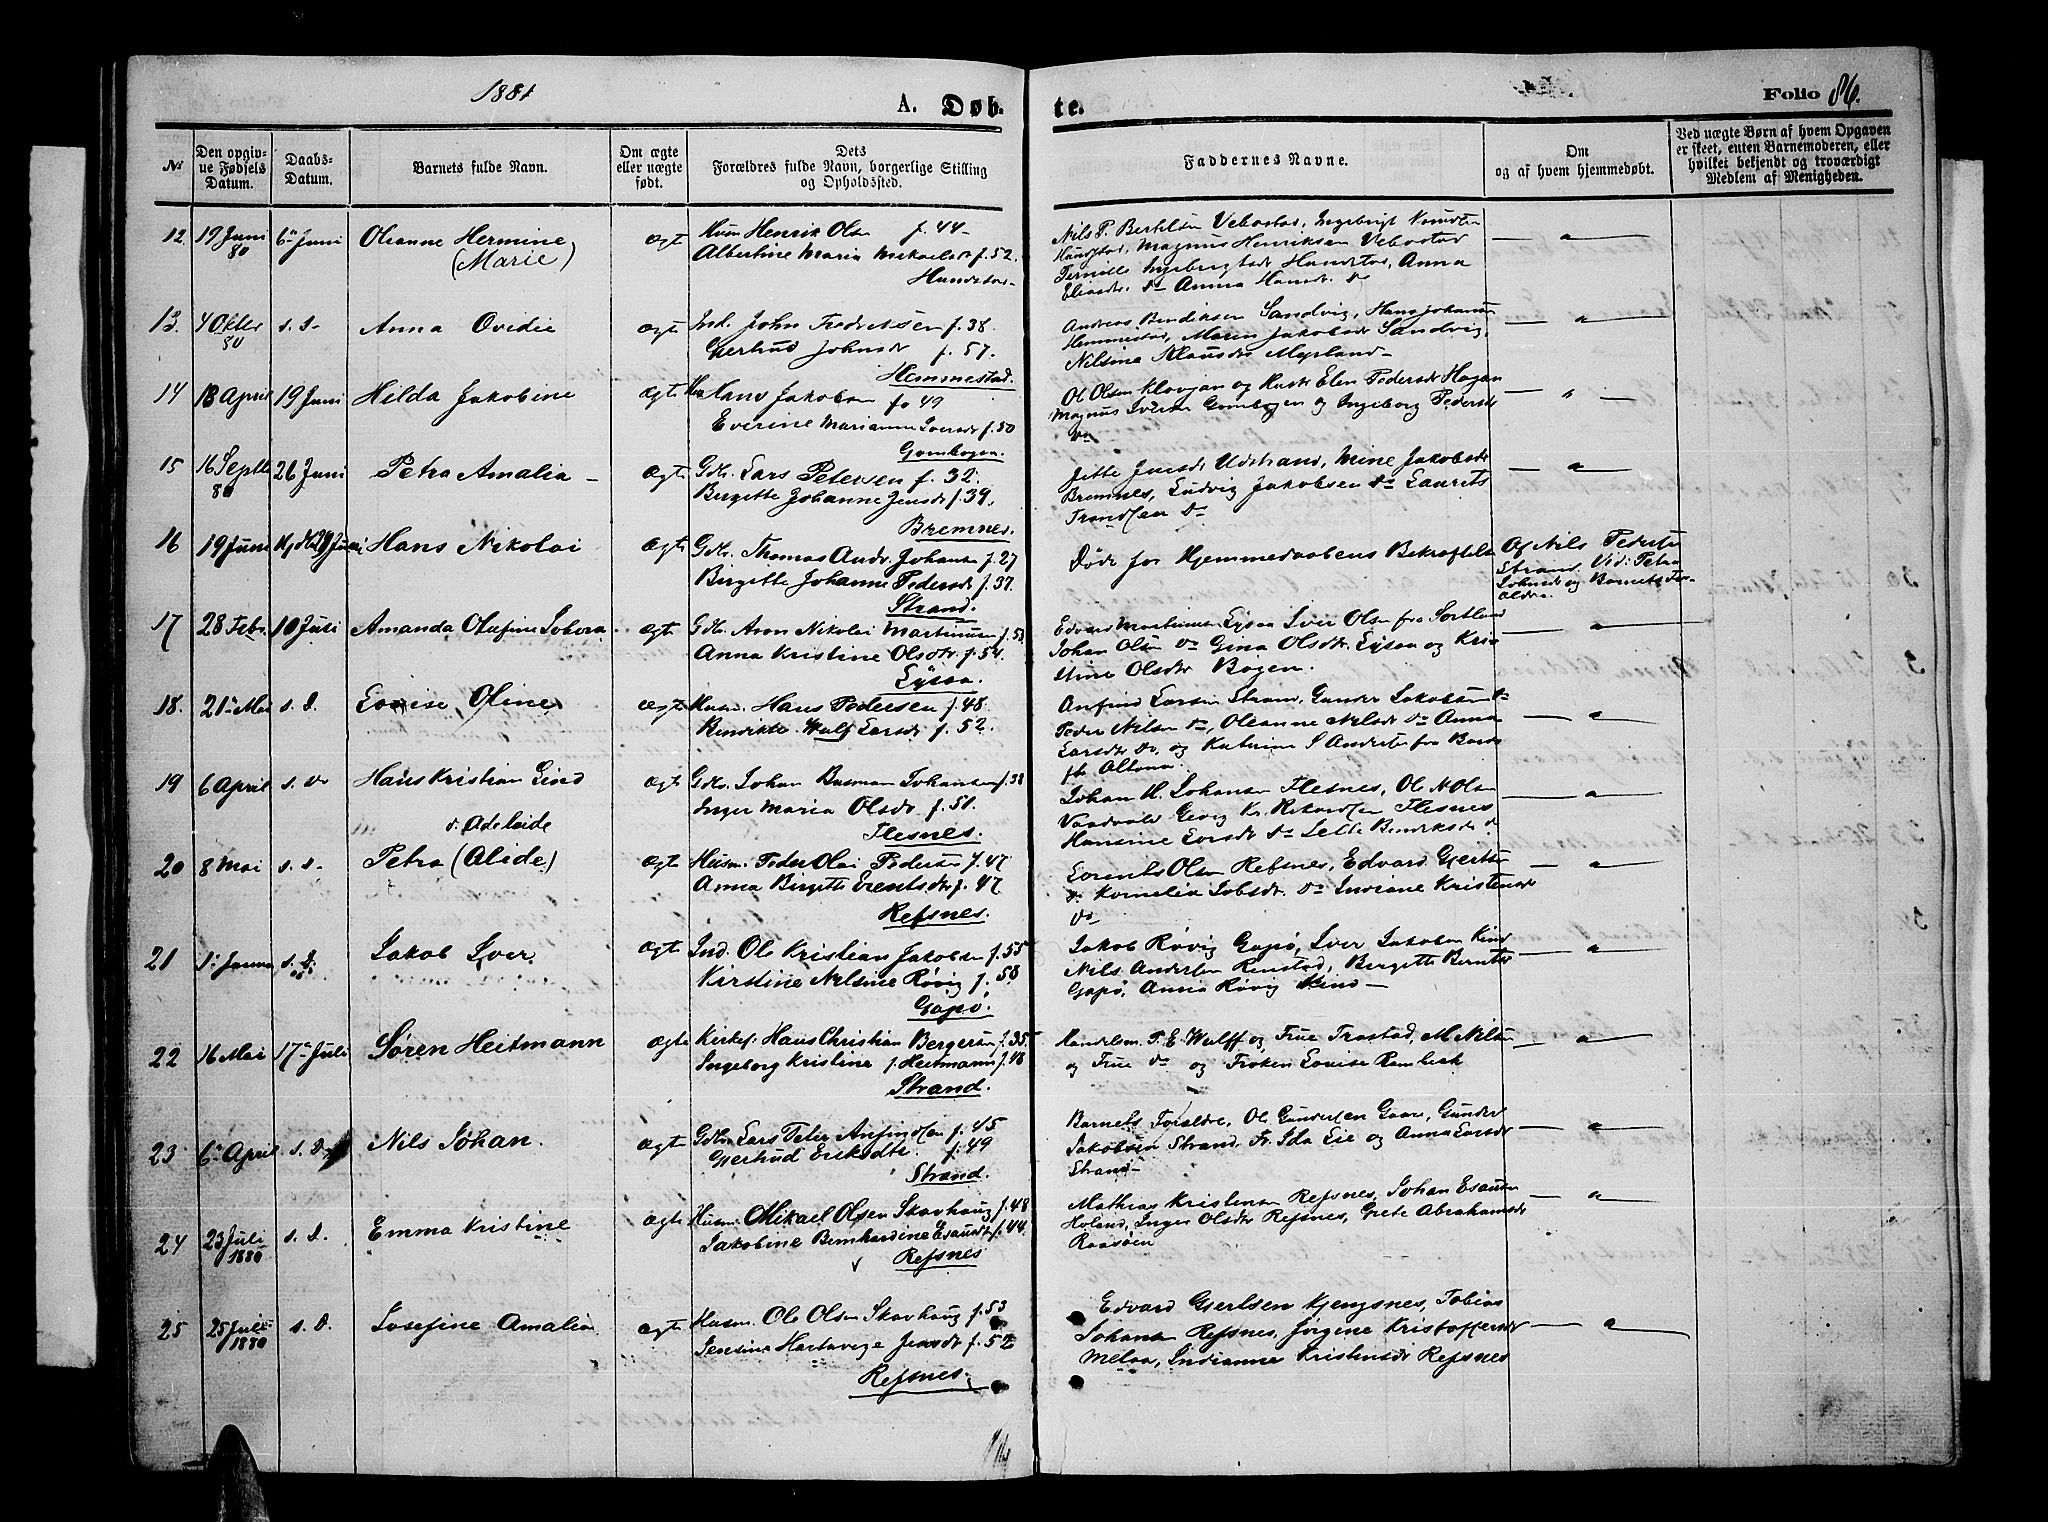 1881
A. Døb-
te.
Folio 86.
No
Den opgiv-
ne Fødsels
Datum.
Daabs-
Datum.
Barnets fulde Navn.
Om ægte
eller uægte
født.
Dets
Forældres fulde Navn, borgerlige Stilling
og Opholdssted.
Faddernes Navne.
Om
og af hvem hjemmedøbt.
Ved uægte Børn af hvem Opgaven
er skeet, enten Barnemoderen, eller
hvilket bekjendt og troværdigt
Medlem af Menigheden.
12. 19 Juni 80 6te Juni Oleanne Hermine (Marie) ægte
Husm Henrik Olsen f. 44
Albertine Maria Mikaelsdr f. 52.
Hundstad
Nils P. Bertelsen Vebostad, Ingebrigt Knudsen
Hundstad, Magnus Henriksen Vebostad
Pernille Ingebrigtsdr Hundstad, Anna
Eliasdr. do Anna Hansdr. do
13. 4 Okber 80 s. D. Anna Ovidie ægte
Ind. John Fredriksen f. 38.
Gjertrud Johnsdr f. 57.
Hemmestad.
Andreas Bendiksen Sandvig, Hans Johansen
Hemmestad, Maren Jakobsdr Sandvig,
Nilsina Klausdr Myrland
14 18 April 19 Juni Hilda Jakobine ægte
Hans Jakobsen f. 49
Everine Marianne Iversdr f. 50
Gombogen.
Ol Olsen Klovjan og Kustr Elen Pedersdr Hagan
Magnus Iversen Gombogen og Ingeborg Pedersdr
do
15 16 Septbr 80 26 Juni Petra Amalia ægte
Gdbr. Lars Petersen f. 32.
Birgitte Johanne Jensdr f. 39.
Bremnes.
Jette Jensdr Udstrand, Mine Jakobsdr
Bremnes, Ludvig Jakobsen do Laurits
Trondsen do
16 19 Juni Hj.d. 29 Juni Hans Nikolai ægte
Gdbr. Thomas Andr. Johansen f. 27
Birgitte Johanne Pedersdr f. 37.
Strand.
Døde før Hjemmedaabens Bekræftelse
Af Nils Pedersen
Strand. Vid: Petra
Johnsdr og Barnets For-
ældre.
17 28 Febr. 10 Juli Amanda Olufine Lovera ægte
Gdbr. Aron Nikolai Martinusen f. 53
Anna Kristine Olsdtr. f. 54.
Lysaa.
Edvard Martinusen Lysaa Iver Olsen fra Sortland
Johan Olsen do Gina Olsdtr. Lysaa og Kris-
tine Olsdtr Bogen.
18. 21de Mai s. D. Lovise Oline ægte
Husm. Hans Pedersen f. 48.
Bendikte Wulf Larsdr f. 52.
Anfind Larsen Strand, Gunder Jakobsen do
Peder Nilsen do, Oleanne Nilsdr do Anna
Larsdtr do. og Katrine S Andersen fra Bards
fj. Altona.
19 6 April s. D. Hans Kristian Lind ægte
Gdbr. Johan Baman Johansen f. 38
Inger Maria Olsdr. f. 51.
Flesnes.
Johan H. Johansen Flesnes, Ole N Olsen
Vaadvold Gevig Kr. Rikardsen Flesnes
Hansine Larsdr do Lette Bendiksdr do
d. Adelaide
20 8 Mai s. D. Petra (Alide) ægte
Husm. Peder Olai Pedersen f. 47
Anna Birgitte Erentsdtr f. 47
Refsnes.
Lorents Olsen Refsnes, Edvard Gjertsen
do Kornelia Jobsdr. do Indiane Kristensdr
do
21 1. Januar s. D. Jakob Iver ægte
Ind. Ole Kristian Jakobsen f. 55
Kirstine Nilsine Røvig f. 58
Gapø.
Jakob Røvig Gapø, Iver Jakobsen Kind
Nils Andersen Renstad, Birgitte Berntsdr
Gapø, Anna Røvig Kind
22 16 Mai 17de Juli Søren Heitmann ægte
Kirkes: Hans Christian Bergersen f. 35
Ingeborg Kristine f Heitmann f. 48
Strand.
Handelsm. P. E. Wulff og Frue Trastad, M Nilsen
og Frue do og Frøken Lovise Rambech
23 6te April s. D. Nils Johan. ægte
Gdbr. Lars Peter Anfindsen f. 45
Gjertrud Eriksdtr. f. 49
Strand.
Barnets Forældre, Ole Gundersen Gaare, Gunder
Jakobsen Strand, Fr. Ida Lie og Anna Larsdr
Strand
24 23 Juli 1880 s. D. Emma Kristine ægte
Husm. Mikael Olsen Skavhaug f. 48
Jakobine Bernhardine Esaiasdtr f. 44.
Refsnes
Mathias Kristensen Refsnes, Johan Esaiasen
Holand, Inger Olsdtr Refsnes, Grete Abrahamsdr
Raasøen
25 25 Juli 1880 s. D. Josefine Amalia ægte
Husm. Ole Olsen Skavhaug f. 53
Jensine Hartavige Jensdr f. 52
Refsnes.
Edvard Gjertsen Kjengsnes, Tobias
Johansen Refsnes, Jørgine Kristoffersdr
Melaa, Indianna Kristensdr Refsnes